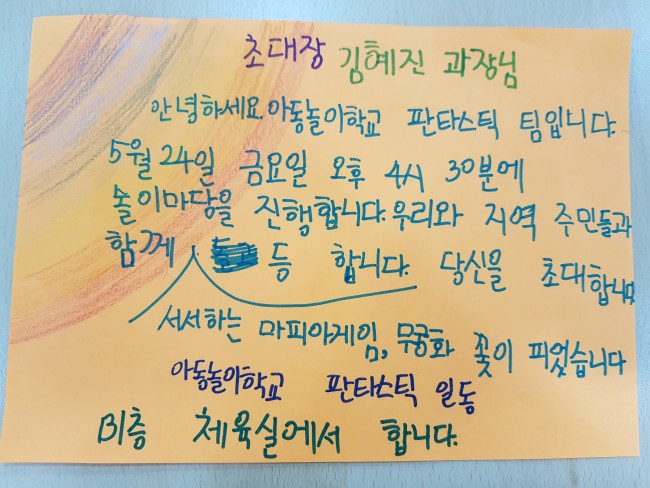 초대장 김혜진 과장님
안녕하세요. 아동놀이학교 판타스틱 팀입니다.
5월 24일 금요일 오후 4시 30분에
놀이마당을 진행합니다. 우리와 지역 주민들과
함께 등 합니다. 당신을 초대합니다
서서하는 마피아게임, 무궁화 꽃이 피었습니다
아동놀이학교 판타스틱 일동
B1층 체육실에서 합니다.